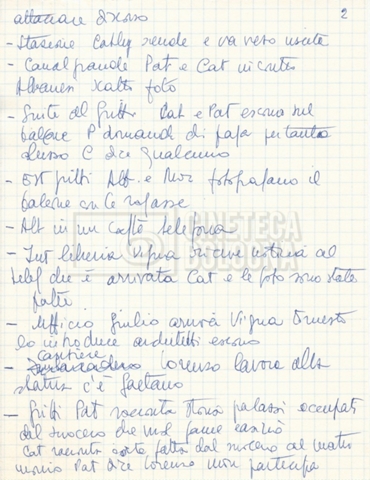 attaccare discorso
2
- Stazione Cathy scende e va verso uscita
- Canal grande Pat e Cat
x altre foto
- Suite del Gritti Cat e Pat escono sul
balcone P domanda di papà per tanto
lusso C dice qualcuno
- Est Gritti Alt. e fotografano il
balcone con le ragazze
- Alt in un caffè telefona
- Int libreria Vigna riceve notizia al
telef che è arrivata Cat e le foto sono state
fatte
- Ufficio Giulio arriva Vigna Ernesto
lo introduce architetti escono
cantiere
- Lorenzo lavora alla
statua c'è Gaetano
- Gritti Pat racconta storia palazzi occupati
dal suocero che
Cat racconta fatta dal suocero al matri
monio Pat dice Lorenzo non partecipa
CINETECA
BOLOGNA